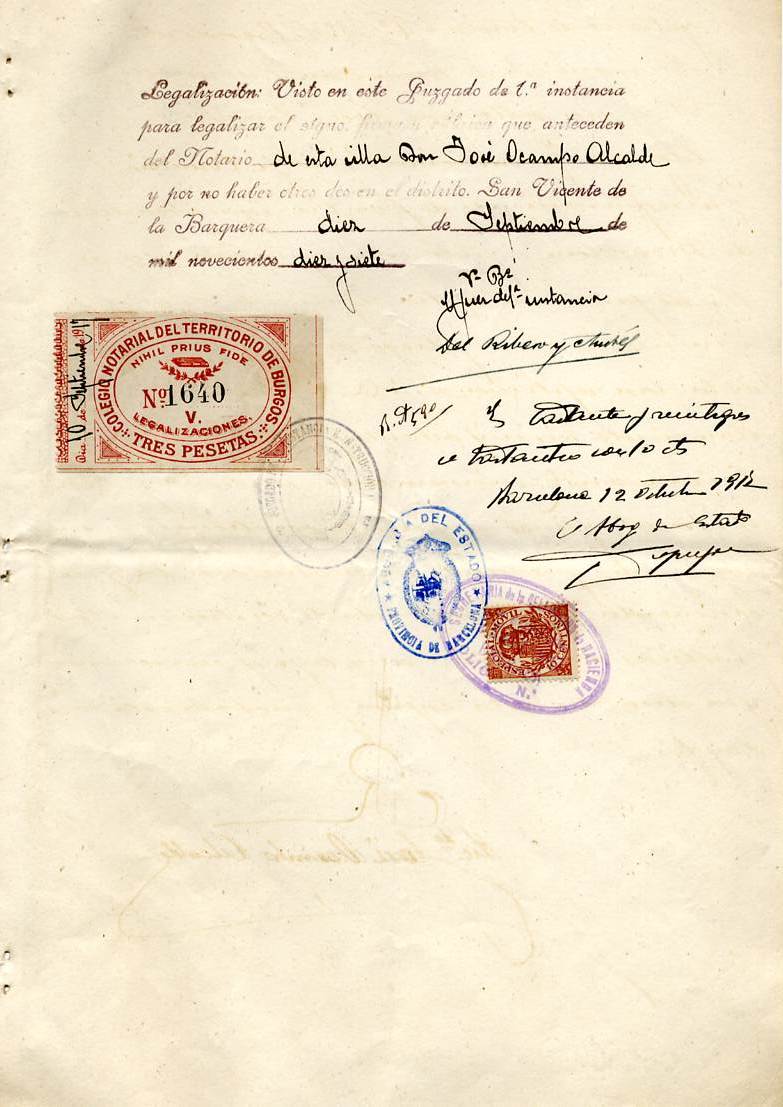 Legalización: Visto en este Juzgado de 1.ª instancia
para legalizar el signo, firma y rúbrica que anteceden
del Notario de esta villa Don José Ocampo Alcalde
y por no haber otros dos en el distrito. San Vicente de
la Barquera diez de Septiembre de
mil novecientos diez y siete
Vº Bº
instancia
Del Ribero y
COLEGIO NOTARIAL DEL TERRITORIO DE BURGOS
NIHIL PRIUS FIDE
Nº 1640
V.
LEGALIZACIONES.
TRES PESETAS
Día 10 de Septiembre de 1917
Bastante y
Barcelona 12 octubre
El Abog del Estado
ABOGACIA DEL ESTADO
PROVINCIA DE BARCELONA
ESPECIAL MOVIL
HACIENDA
N.º